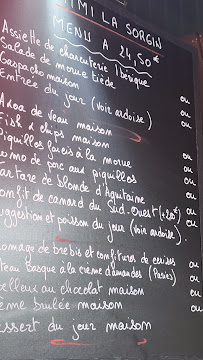 IMI LA SORGIN
MENU A 24,50€
Assiette de charcuterie Ibérique ou
Salade de morue tiède ou
Gaspacho maison ou
Entrée du jour (voir ardoise)
Axoa de Veau maison ou
Fish & chips maison ou
Piquillos farcis à la morue ou
omo de porc aux piquillos ou
artare de blonde d'Aquitaine ou
onfit de canard du Sud-Ouest ou
uggestion et poisson du jour (voir ardoise).
omage de brebis et confitures de cerises ou
teau basque à la crème d'amandes (Pariès) ou
elleux au chocolat maison ou
ème brulée maison ou
essert du jour maison